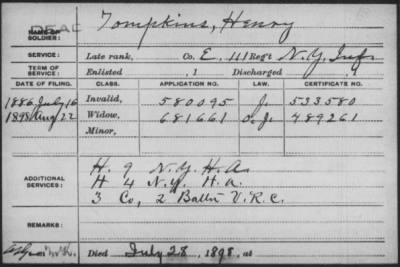 DEAD
NAME OF SOLDIER: Tompkins, Henry
SERVICE: Late rank, Co. E, 111 Regt N.Y. Inf.
TERM OF SERVICE: Enlisted , 1 Discharged , 1
DATE OF FILING. CLASS. APPLICATION NO. LAW. CERTIFICATE NO.
1886 July 16 Invalid, 580095 J. 533580
1898 Aug 22 Widow, 681661 O.J. 489261
Minor,
ADDITIONAL SERVICES:
H. 9 N.Y. H.A.
H 4 N.Y. H.A.
3 Co, 2 Batln V.R.C.
REMARKS:
Died July 28, 1898, at